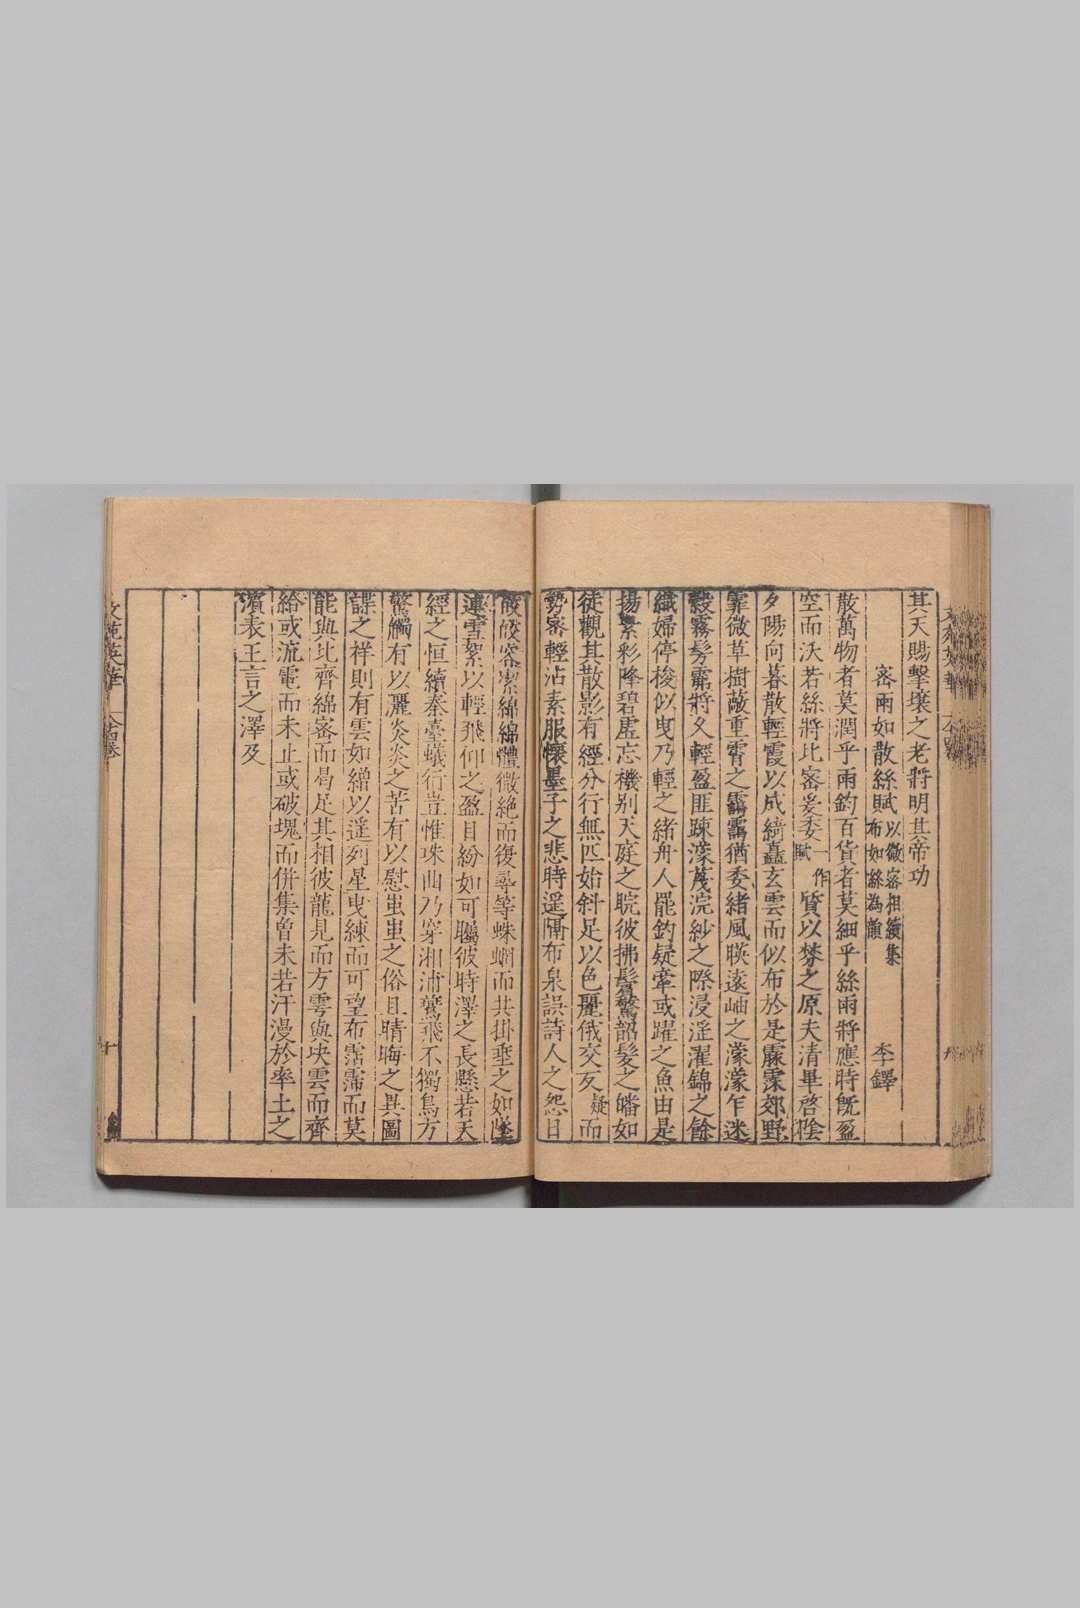 其天賜擊壤之老將明其帝功
密雨如散絲賦 以微密相續集布如絲為韻 李鐸
散萬物者莫潤乎雨鈞百貨者莫細乎絲雨將應時旣盈
空而沃若絲將比密爰委一作賦質以棼之原夫清畢啓陰
夕陽向暮散輕霞以成綺矗玄雲而似布於是霢霂郊野
霏微草樹蔽重霄之靄靄猶委緒風暎遠岫之濛濛乍迷
縠霧滂霈將久輕盈匪踈濛茂浣紗之際浸淫濯錦之餘
織婦停梭似曳乃輕之緒舟人罷釣疑牽或躍之魚由是
揚素彩降碧虛忘機别天庭之睆彼拂鬢驚韶髮之皤如
徒觀其散影有經分行無匹始斜足以色麗俄交友疑而
勢密輕沾素服懷墨子之悲時遥隔布泉誤詩人之怨日
皎皎密潔綿綿體微絶而復尋等蛛網而共掛垂之如墜
連雪絮以輕飛仰之盈目紛如可矚彼時澤之長懸若天
經之恒續秦臺蟻行豈惟珠曲乃穿湘浦鷺飛不獨鳥方
驚觸有以灑炎炎之苦有以慰蚩蚩之俗且晴晦之異圖
諜之祥則有雲如繒以遥列星曳練而可望布霑霈而莫
能與比齊綿密而曷足其相彼龍見而方雩與决雲而齊
給或流電而未止或破塊而併集曾未若汗漫於率土之
濱表王言之澤及
文苑英華
十